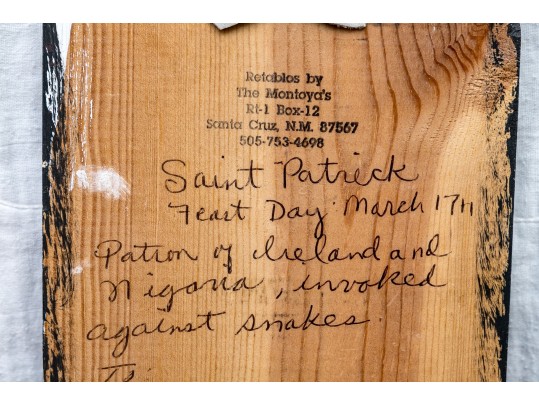 Retablos by
The Montoya's
Rt-1 Box-12
Santa Cruz, N.M. 87567
505-753-4698
Saint Patrick
Feast Day March 17th
Patron of Ireland and
Nigaria, invoked
against snakes.